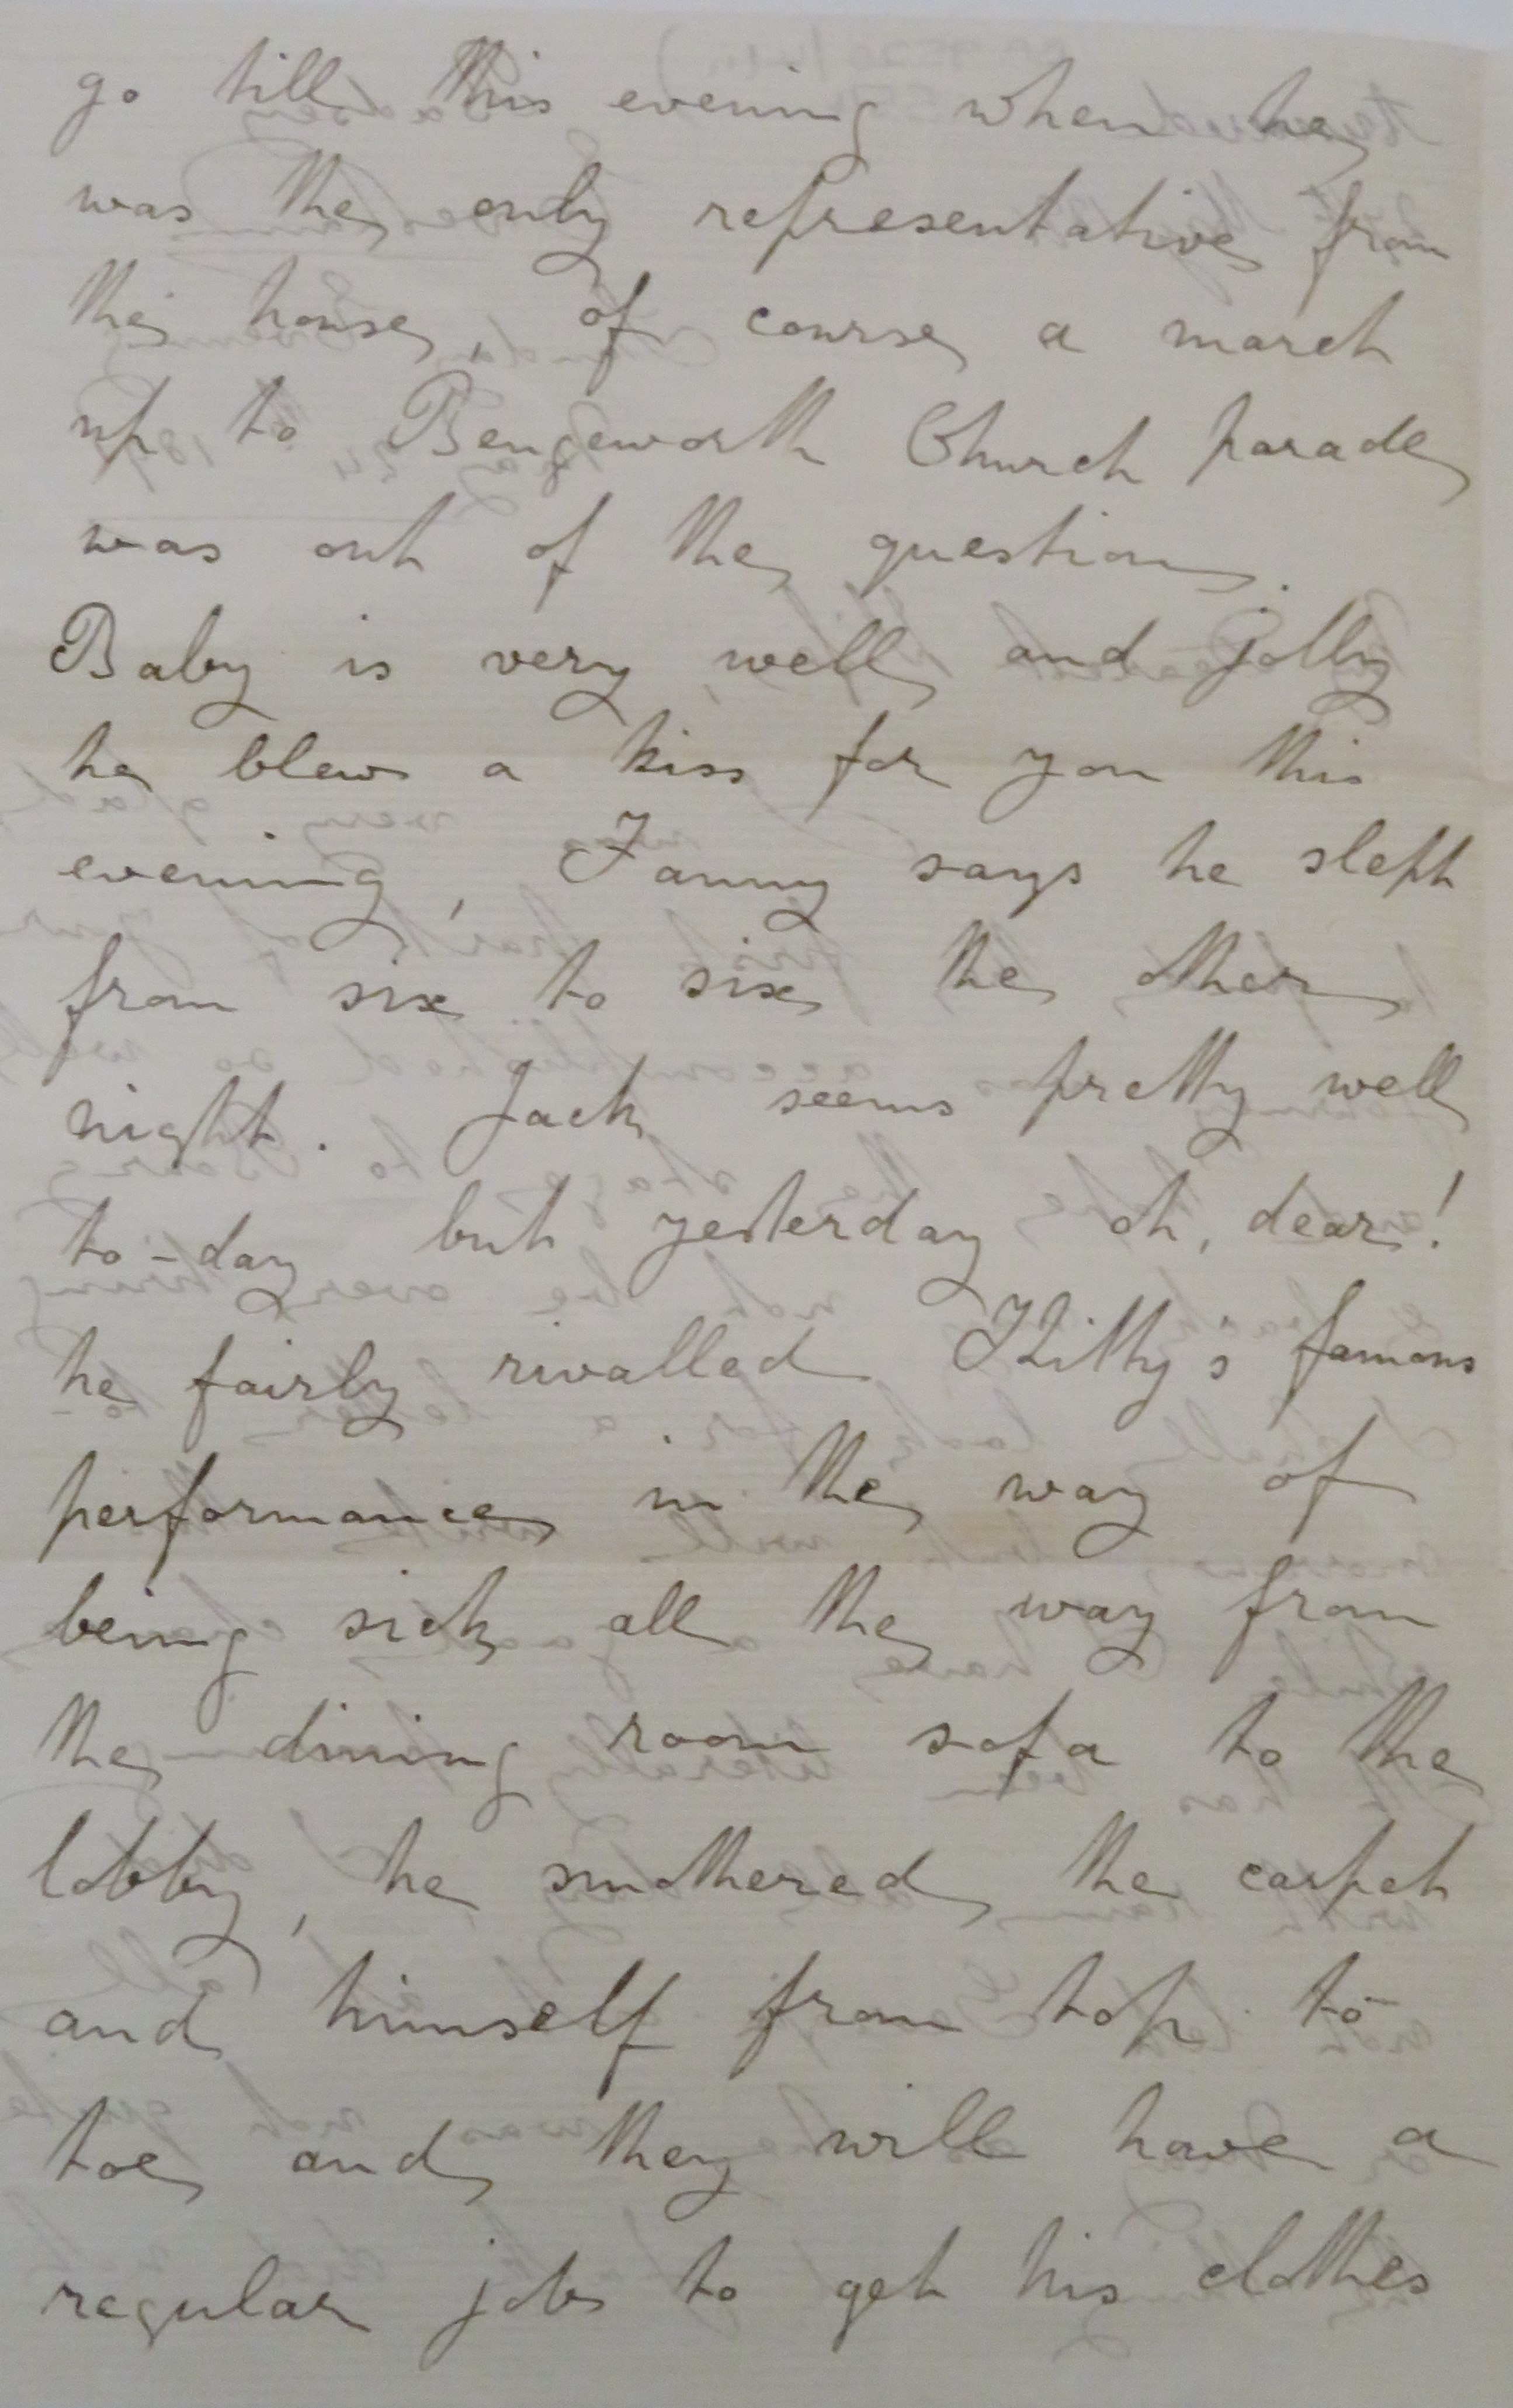 go till this evening when he
was the only representative from
the house, of course a march
up to Bengeworth Church parade
was out of the question.
Baby is very well and jolly
he blew a kiss for you this
evening, Fanny says he slept
from six to six the other
night. Jack seems pretty well
to-day but yesterday oh, dear!
he fairly rivalled Kitty's famous
performance in the way of
being sick all the way from
the dining room sofa to the
lobby, he smothered the carpet
and himself from top to
toe and they will have a
regular job to get his clothes